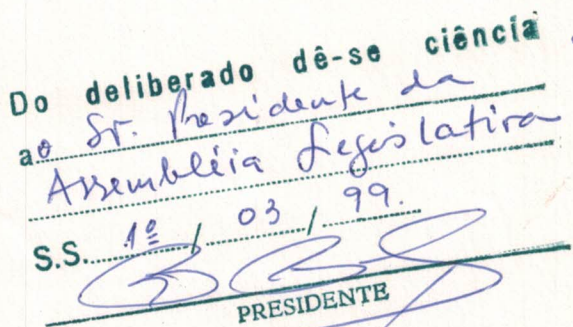 Do deliberado dê-se ciência
ao Sr. Presidente da
Assembléia Legislativa
S.S. 1º / 03 / 99.
PRESIDENTE